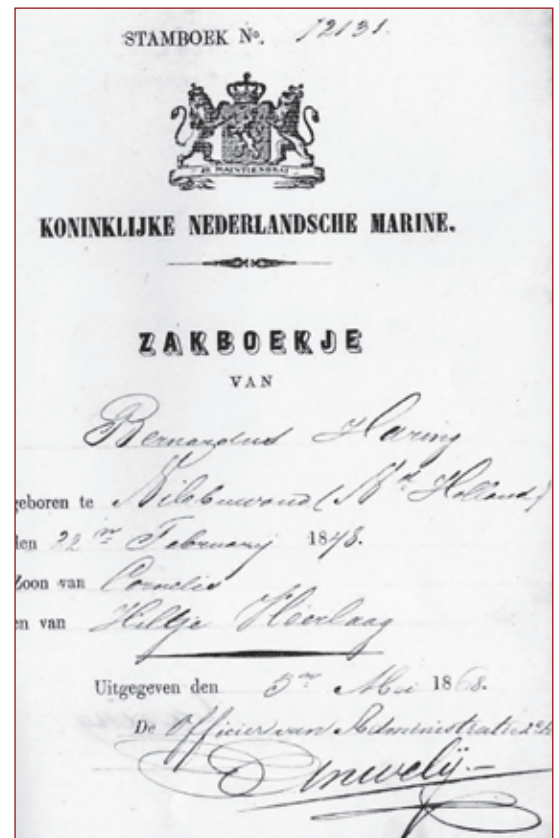 STAMBOEK No. 12131.
JE MAINTIENDRAI
KONINKLIJKE NEDERLANDSCHE MARINE.
ZAKBOEKJE
VAN
Bernardus Haring
geboren te (Nd Holland)
den 22ne February 1848.
Zoon van Cornelis
en van Hiltje
Uitgegeven den 5ne Mei 1868.
De Officier van Administratie